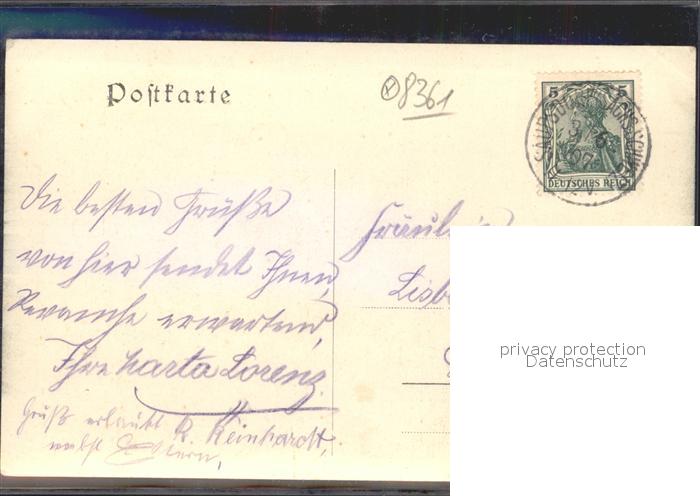 Postkarte
8361
5 5
DEUTSCHES REICH
Die besten Grüße
von hier sendet Ihnen,
Revanche erwartend,
Ihre Harta Lorenz
Gruß erlaubt R. Reinhardt,
nebst
Fräulein
Lisb
privacy protection
Datenschutz